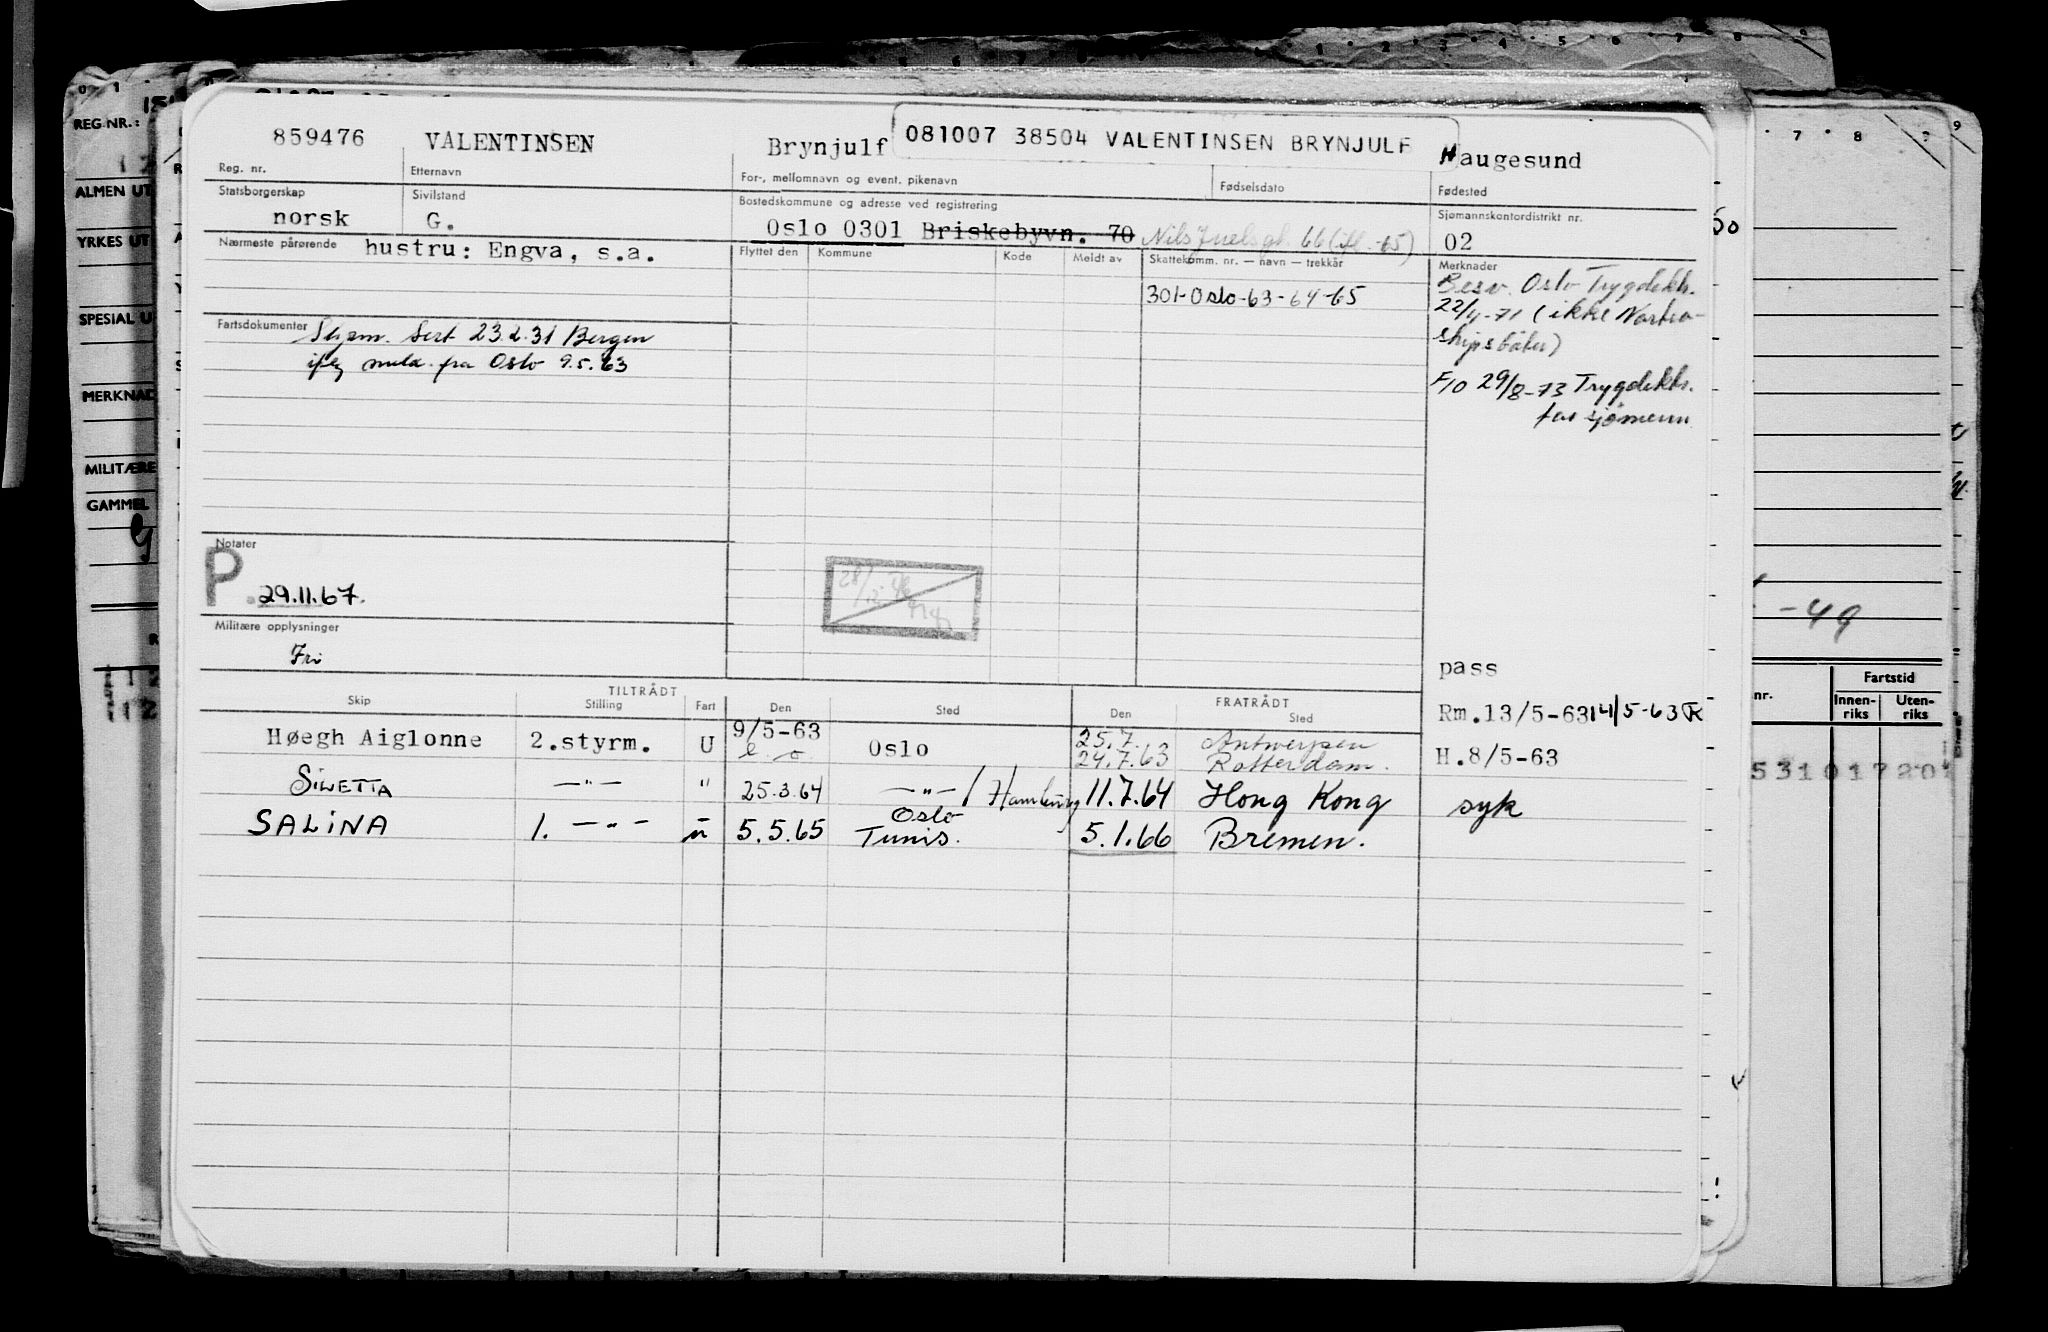 859476 VALENTINSEN Brynjulf 081007 38504 VALENTINSEN BRYNJULF Haugesund
Reg. nr. Etternavn For-, mellomnavn og event. pikenavn Fødselsdato Fødested
Statsborgerskap Sivilstand Bostedskommune og adresse ved registrering Sjømannskontordistrikt nr.
norsk G. Oslo 0301 Briskebyvn. 70 Nils Juelsgt. 66 02
Nærmeste pårørende hustru: Engva, s.a. Flyttet den Kommune Kode Meldt av Skattekomm. nr. — navn — trekkår Merknader
301-Oslo-63-64-65
Besv. Oslo Trygdekk.
22/4-71 (ikke Nortra-
shipsbåter)
F/O 29/8-73 Trygdekk.
for sjømenn
Fartsdokumenter Sjøm. Sert 23.2.31 Bergen
iflg meld. fra Oslo 9.5.63
Notater
P 29.11.67.
28/12
Militære opplysninger
Fri
pass
TILTRÅDT FRATRÅDT
Skip Stilling Fart Den Sted Den Sted
Rm.13/5-63 14/5-63 R
Høegh Aiglonne 2.styrm. U 9/5-63 Oslo 25.7. Antwerpen
24.7.63 Rotterdam.
H.8/5-63
SILVETTA —"— " 25.3.64 —"— / Hamburg 11.7.64 Hong Kong syk
SALINA 1. —"— u 5.5.65 Oslo
Tunis. 5.1.66 Bremen.
REG.NR.:
ALMEN UT
YRKES UT
SPESIAL U
MERKNAD
MILITÆRE
GAMMEL
-49
nr. Fartstid
Innen-
riks Uten-
riks